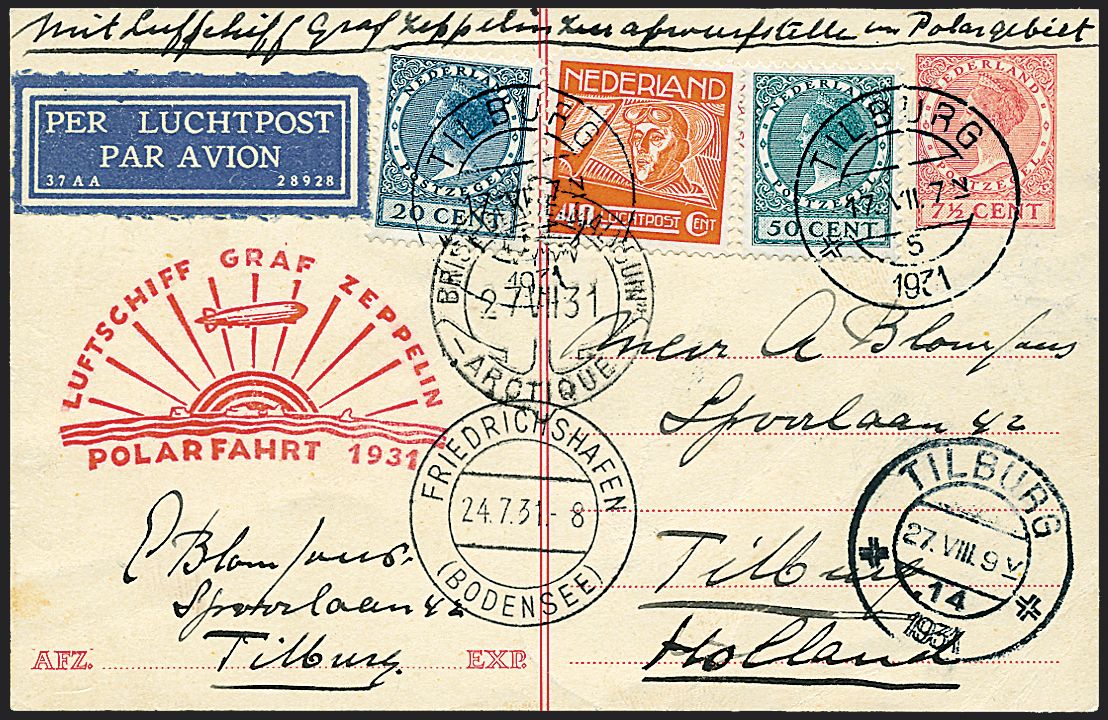 Mit Luftschiff Graf Zeppelin zur Abwurfstelle im Polargebiet
PER LUCHTPOST
PAR AVION
37AA 28928
NEDERLAND
POSTZEGEL
20 CENT
NEDERLAND
40 LUCHTPOST CENT
NEDERLAND
POSTZEGEL
50 CENT
NEDERLAND
POSTZEGEL
7½ CENT
TILBURG
1931
TILBURG
17.VII.7 N
5
1931
LUFTSCHIFF GRAF ZEPPELIN
POLARFAHRT 1931
27 VII 31
ARCTIQUE
FRIEDRICHSHAFEN
24.7.31-8
(BODENSEE)
Mevr A Blomjous
Spoorlaan 42
Tilburg
Holland
TILBURG
27.VIII.9 V
14
1931
Blomjous.
Spoorlaan 42
Tilburg.
AFZ. EXP.